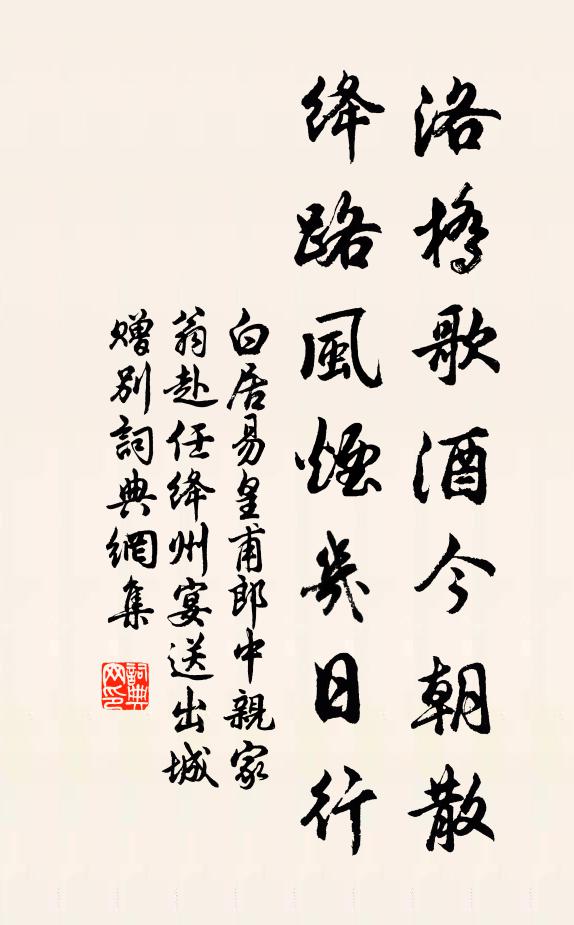 洛橋歌酒今朝散
絳路風煙幾日行
白居易皇甫郎中親家
翁赴任絳州宴送出城
贈別詞典網集
詞典網印